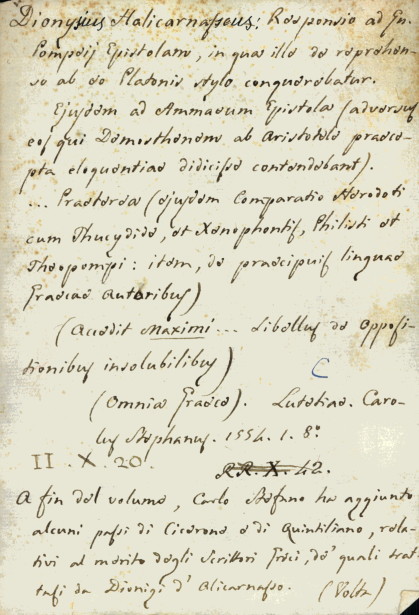 Dionysius Halicarnasseus: Responsio ad Cn.
Pompeij Epistolam, in qua ille de reprehen-
so ab eo Platonis stylo conquerebatur.
Ejusdem ad Ammaeum Epistola (adversus
eos qui Demosthenem ab Aristotele praece-
pta eloquentiae didicisse contendebant).
... Praeterea (ejusdem Comparatio Herodoti
cum Thucydide, et Xenophontis, Philisti et
Theopompi: item, de praecipuis linguae
Graecae Autoribus)
(Accedit Maximi ... Libellus de Opposi-
tionibus insolubilibus)
C
(Omnia Graece). Lutetiae. Caro-
lus Stephanus. 1554. 1. 8º.
II.X.20.
RR.X.42.
A fin del volume, Carlo Stefano ha aggiunto
alcuni passi di Cicerone e di Quintiliano, rela-
tivi al merito degli Scrittori Greci, de' quali trat-
tasi da Dionigi d'Alicarnasso. (Volta)